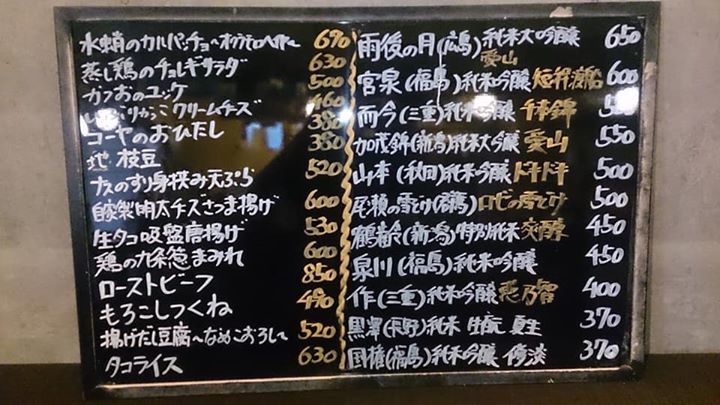 水蛸のカルパッチョ 690
蒸し鶏のチョレギサラダ 630
かつおのユッケ 500
いぶりがっこクリームチーズ 460
ゴーヤのおひたし 380
枝豆 380
ナスのすり身挟み天ぷら 520
自家製明太チーズさつま揚げ 600
生タコ吸盤唐揚げ 530
鶏の九条葱まみれ 600
ローストビーフ 850
もろこしつくね 490
揚げだし豆腐〜なめこおろして 520
タコライス 630
雨後の月(広島)純米大吟醸 愛山 650
宮泉(福島)純米吟醸 短稈渡船 600
而今(三重)純米吟醸 千本錦
加茂錦(新潟)純米大吟醸 愛山 550
山本(秋田)純米吟醸 ドキドキ 500
尾瀬の雪どけ ロゼの雪どけ 500
鶴齢(新潟)特別純米 450
泉川(福島)純米吟醸 450
作(三重)純米吟醸 恵乃智 400
黒澤(長野)純米 生酛 夏生 370
国権(福島)純米吟醸 370